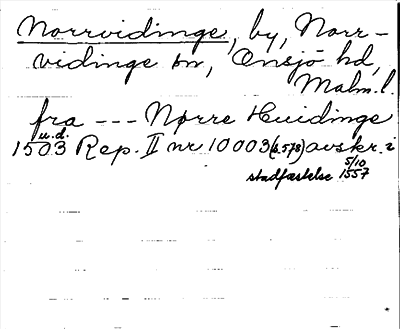 Norrvidinge, by, Norr-
vidinge sn, Onsjö hd,
Malm.l.
fra --- Nørre Huidinge
u.d.
1503 Rep. II nr 10003 (s.578) avskr. i
stadfæstelse 5/10 1557